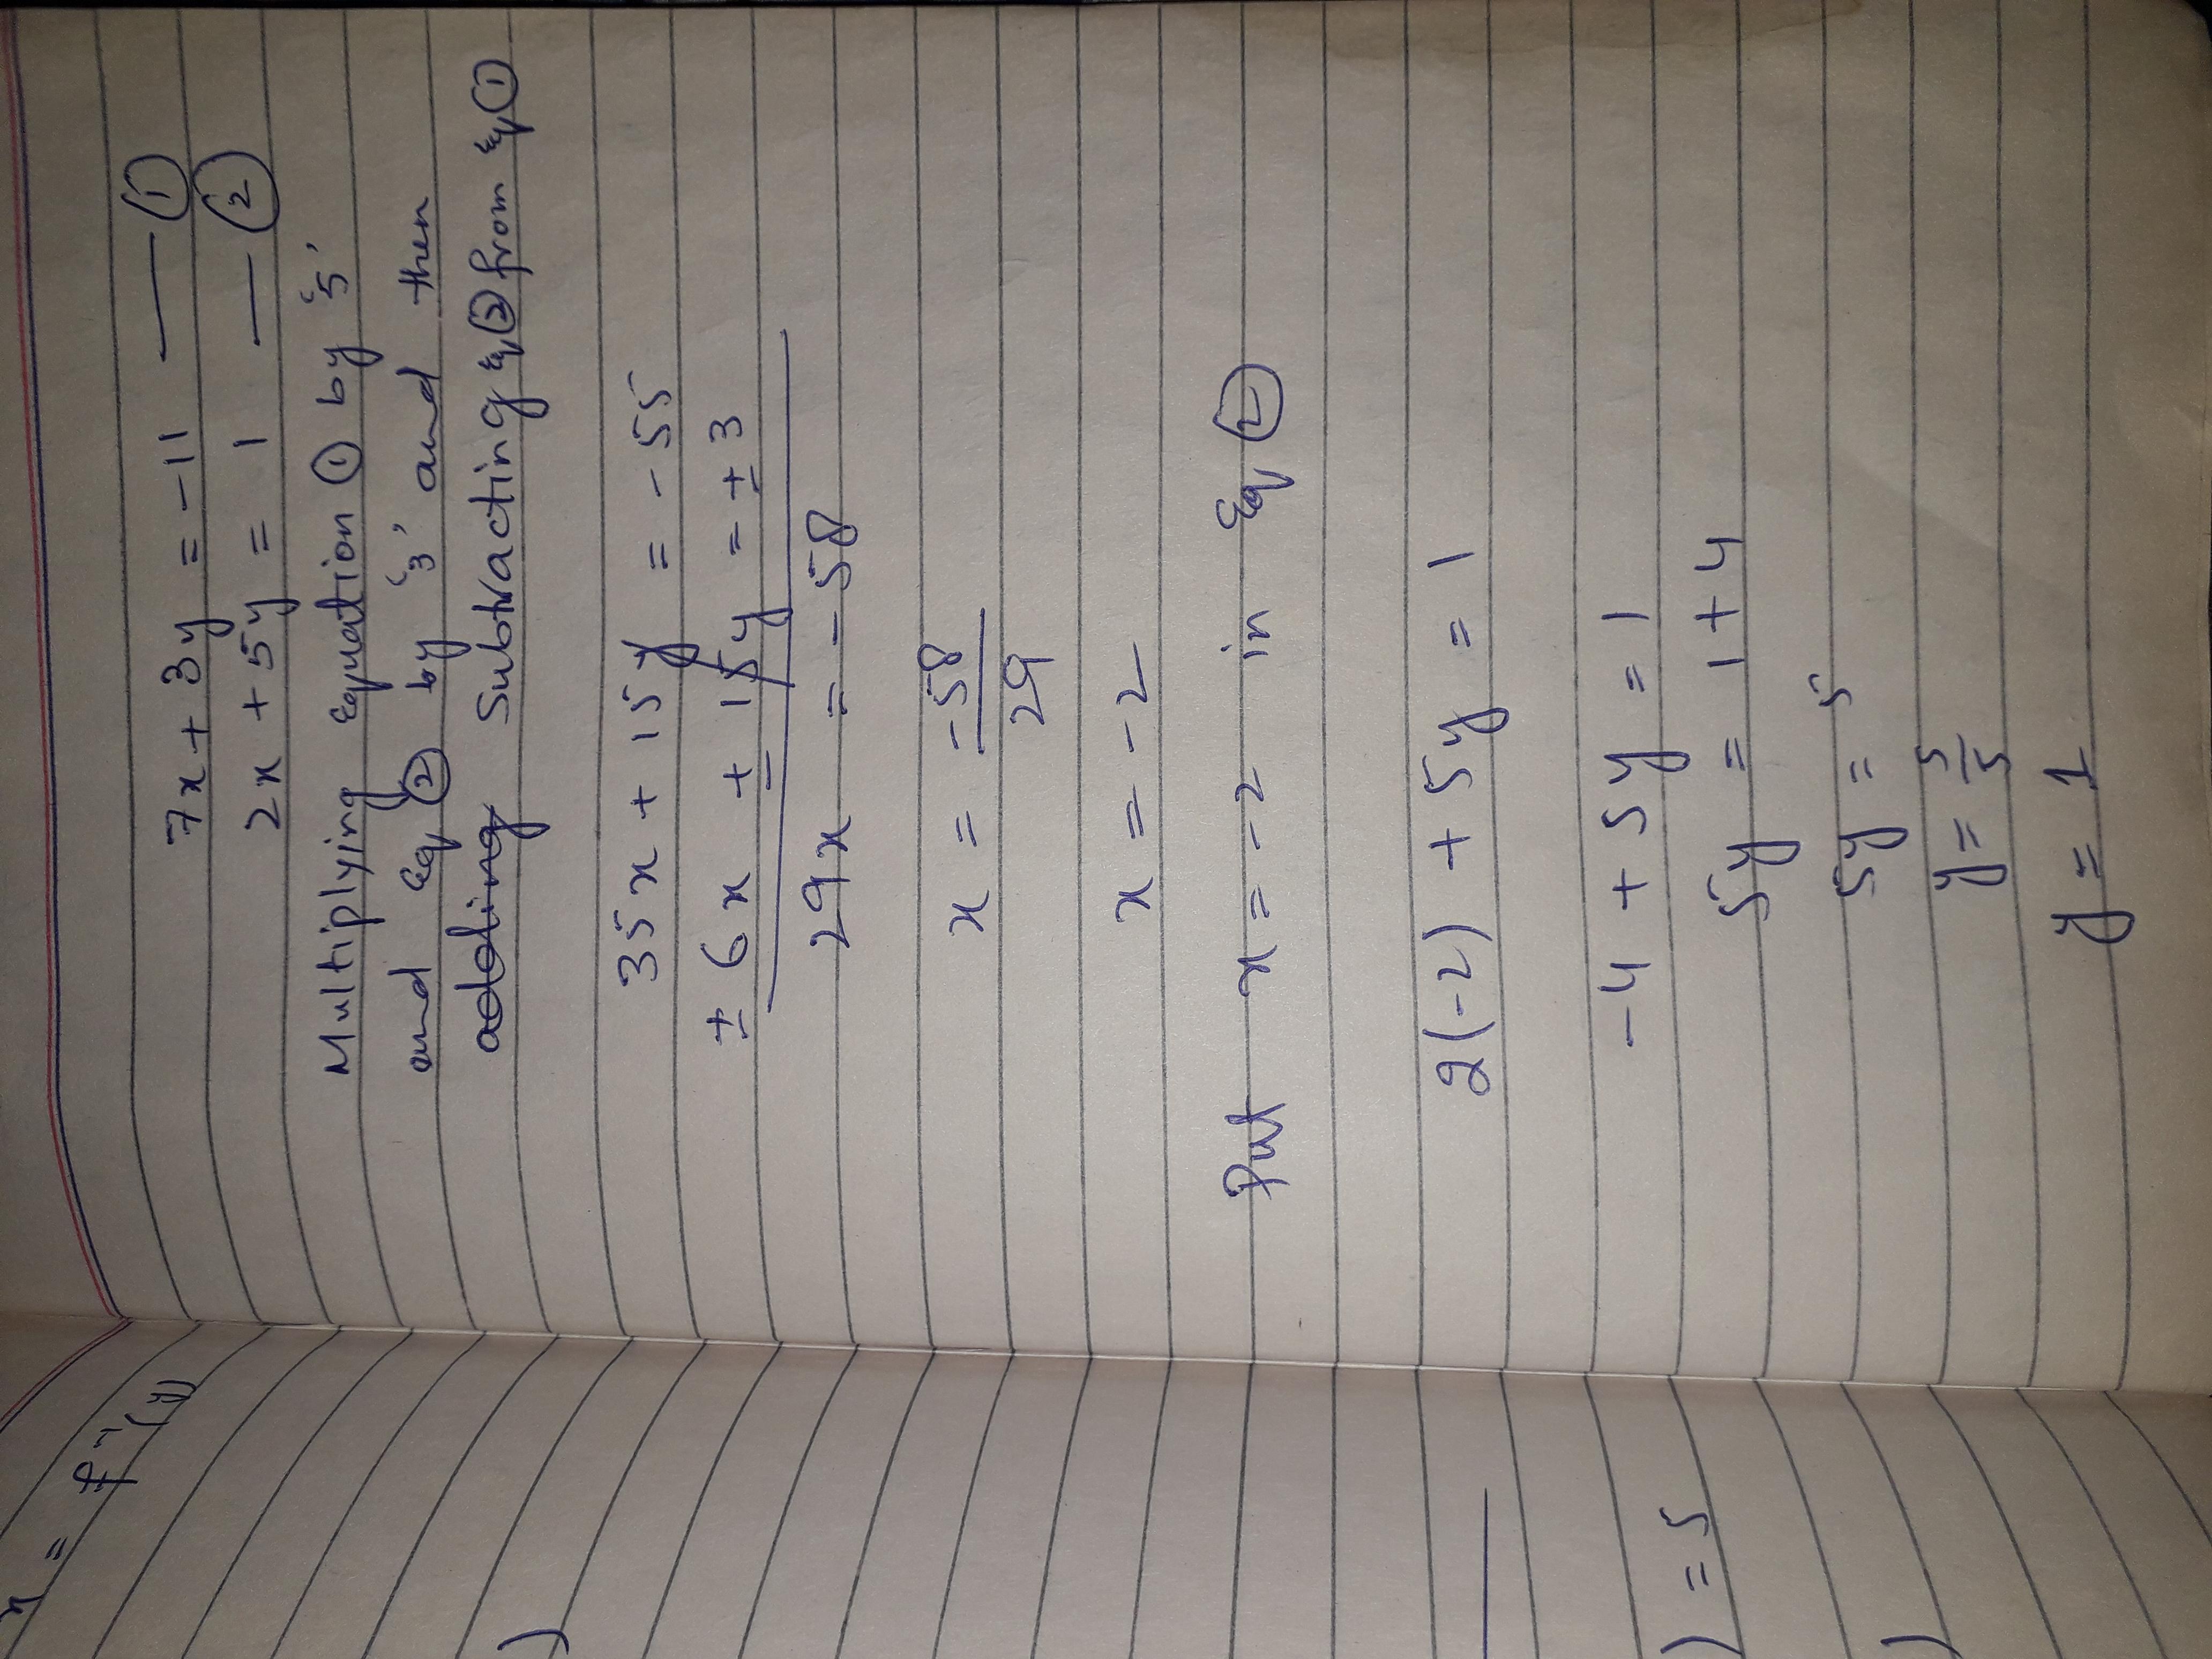 7x + 3y = -11 — ①
2x + 5y = 1 — ②
Multiplying Equation ① by '5'
and Eq ② by '3' and then
adding Subtracting Eq ② from Eq ①
35x + 15y = -55
± 6x ± 15y = ± 3
29x = -58
x = -58/29
x = -2
Put x = -2 in Eq ②
2(-2) + 5y = 1
-4 + 5y = 1
5y = 1 + 4
5y = 5
y = 5/5
y = 1
x = f⁻¹(y)
)
) = 5
)